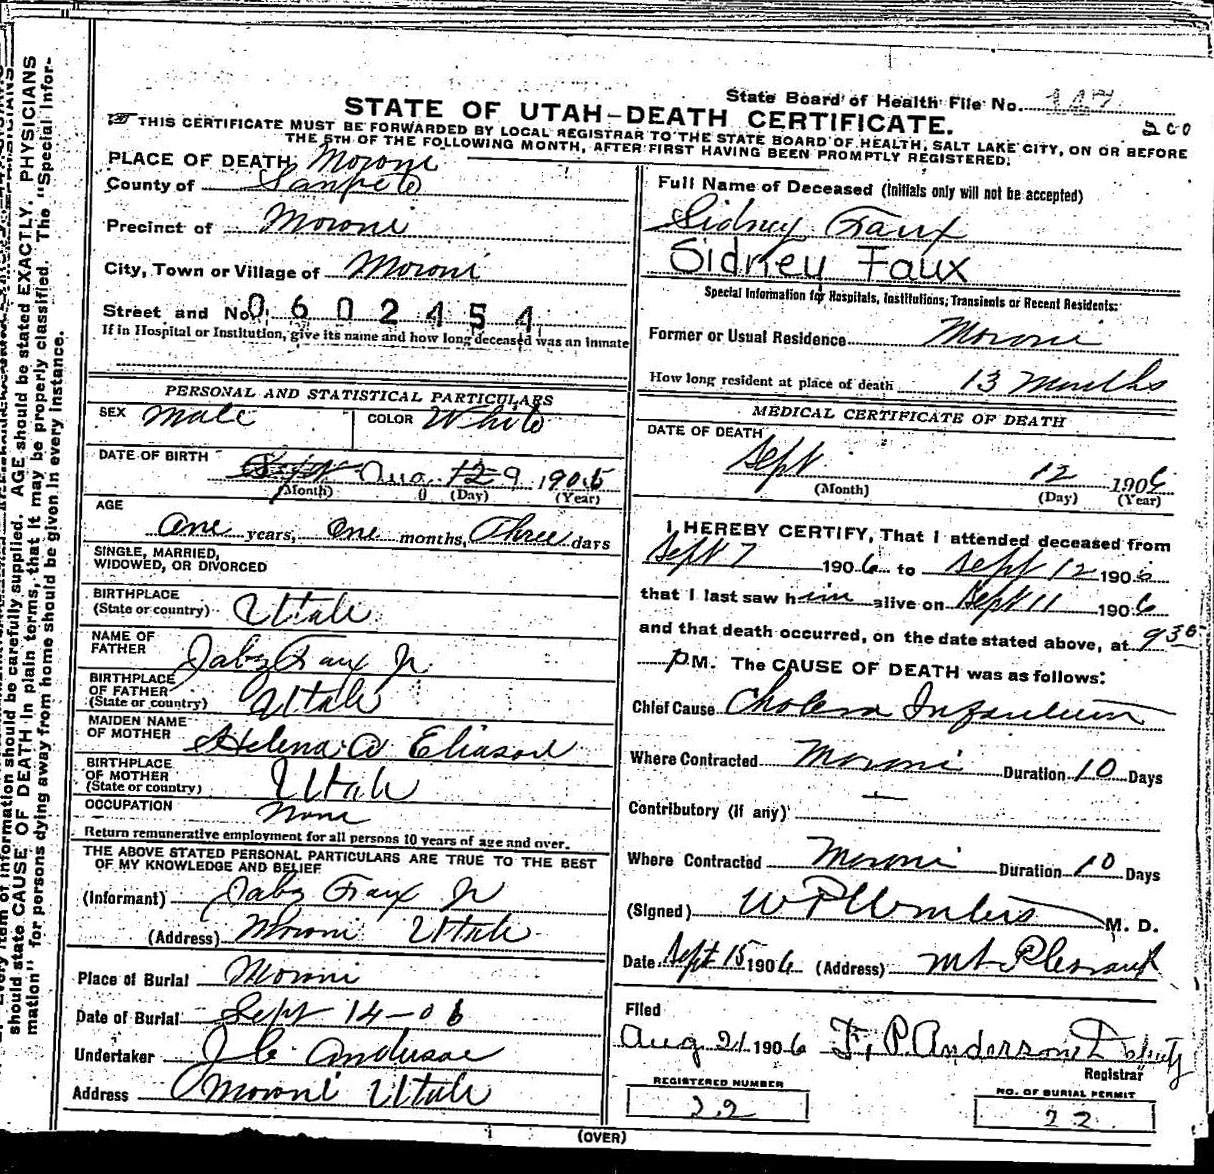 State Board of Health File No. 117
200
STATE OF UTAH-DEATH CERTIFICATE.
THIS CERTIFICATE MUST BE FORWARDED BY LOCAL REGISTRAR TO THE STATE BOARD OF HEALTH, SALT LAKE CITY, ON OR BEFORE
THE 5TH OF THE FOLLOWING MONTH, AFTER FIRST HAVING BEEN PROMPTLY REGISTERED.
PLACE OF DEATH Moroni
County of Sanpete
Precinct of Moroni
City, Town or Village of Moroni
Street and No. 0602454
If in Hospital or Institution, give its name and how long deceased was an inmate
PERSONAL AND STATISTICAL PARTICULARS
SEX Male COLOR White
DATE OF BIRTH Aug 12 9 1905
(Month) (Day) (Year)
AGE
One years, One months, Three days
SINGLE, MARRIED,
WIDOWED, OR DIVORCED
BIRTHPLACE
(State or country) Utah
NAME OF
FATHER Jabz Faux Jr
BIRTHPLACE
OF FATHER
(State or country) Utah
MAIDEN NAME
OF MOTHER Helena A Eliason
BIRTHPLACE
OF MOTHER
(State or country) Utah
OCCUPATION None
Return remunerative employment for all persons 10 years of age and over.
THE ABOVE STATED PERSONAL PARTICULARS ARE TRUE TO THE BEST
OF MY KNOWLEDGE AND BELIEF
(Informant) Jabz Faux Jr
(Address) Moroni Utah
Place of Burial Moroni
Date of Burial Sept 14-06
Undertaker J.C. Anderson
Address Moroni Utah
Full Name of Deceased (Initials only will not be accepted)
Sidney Faux
Sidney Faux
Special Information for Hospitals, Institutions, Transients or Recent Residents:
Former or Usual Residence Moroni
How long resident at place of death 13 Months
MEDICAL CERTIFICATE OF DEATH
DATE OF DEATH
Sept 12 1906
(Month) (Day) (Year)
I HEREBY CERTIFY, That I attended deceased from
Sept 7 1906 to Sept 12 1906
that I last saw him alive on Sept 11 1906
and that death occurred, on the date stated above, at 9 30
P M. The CAUSE OF DEATH was as follows:
Chief Cause Cholera Infantum
Where Contracted Moroni Duration 10 Days
Contributory (if any) —
Where Contracted Moroni Duration 10 Days
(Signed) M. D.
Date Sept 15 1906 (Address) Mt Pleasant
Filed
Aug 21 1906 F. P. Anderson Deputy
Registrar
REGISTERED NUMBER
22
NO. OF BURIAL PERMIT
22
(OVER)
Every item of information should be carefully supplied. AGE should be stated EXACTLY. PHYSICIANS
should state CAUSE OF DEATH in plain terms, that it may be properly classified. The "Special Infor-
mation" for persons dying away from home should be given in every instance.